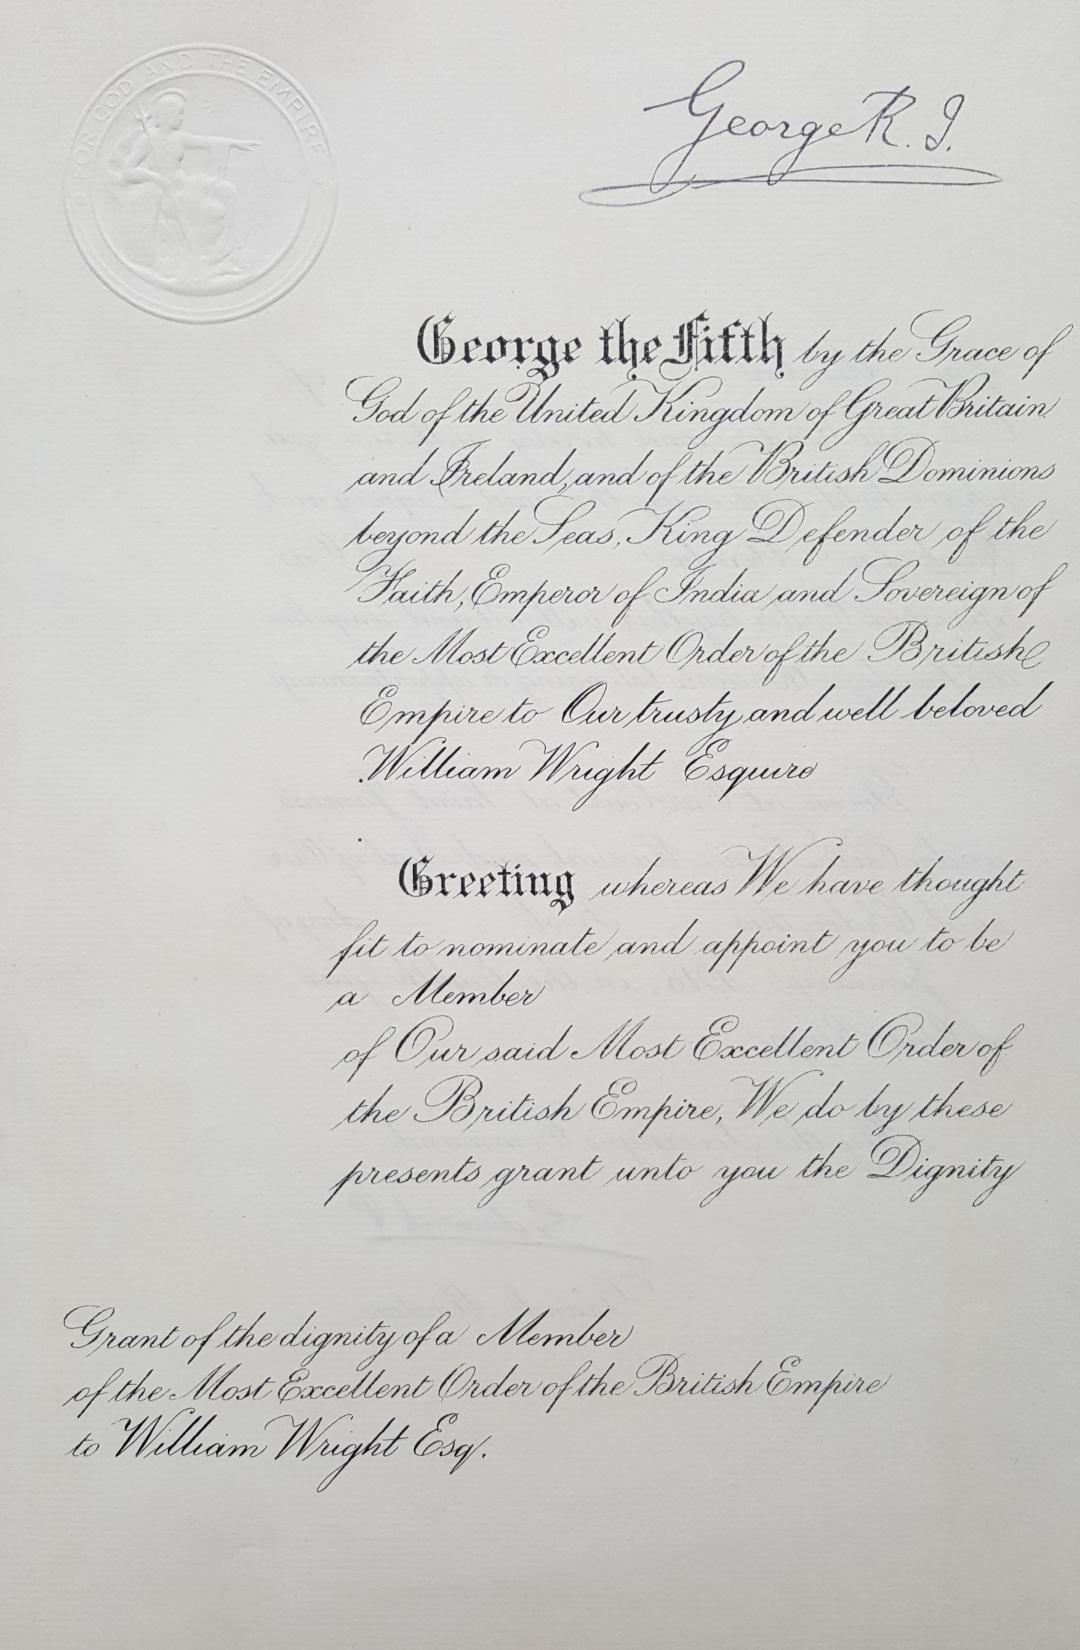 FOR GOD AND THE EMPIRE
George R. I.
George the Fifth by the Grace of
God of the United Kingdom of Great Britain
and Ireland, and of the British Dominions
beyond the Seas, King Defender of the
Faith, Emperor of India and Sovereign of
the Most Excellent Order of the British
Empire to Our trusty and well beloved
William Wright Esquire
Greeting whereas We have thought
fit to nominate and appoint you to be
a Member
of Our said Most Excellent Order of
the British Empire, We do by these
presents grant unto you the Dignity
Grant of the dignity of a Member
of the Most Excellent Order of the British Empire
to William Wright Esq.